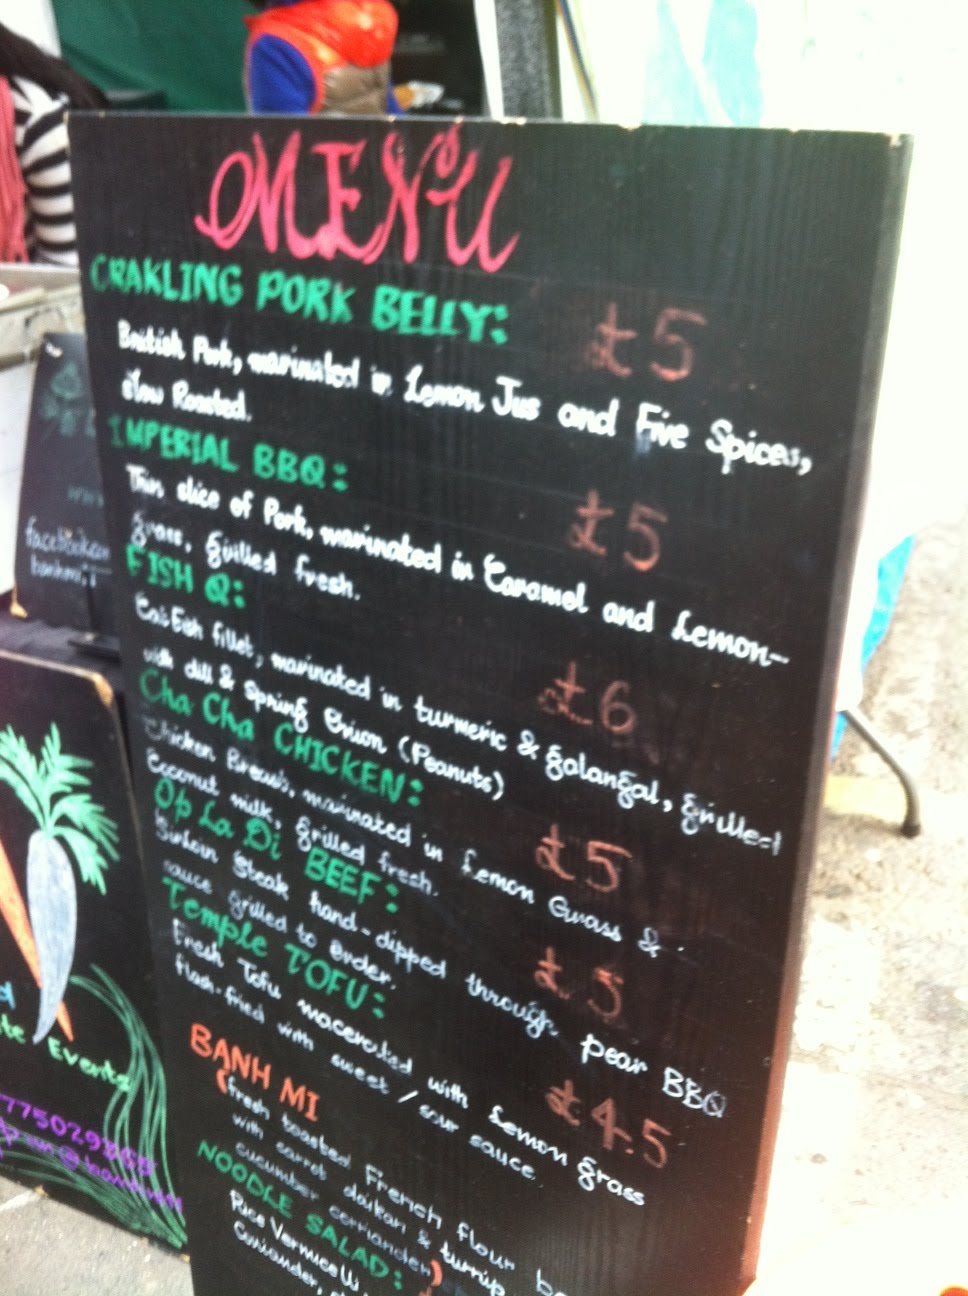 MENU
CRAKLING PORK BELLY: £5
British Pork, marinated in Lemon Jus and Five Spices,
slow Roasted.
IMPERIAL BBQ: £5
Thin slice of Pork, marinated in Caramel and Lemon-
grass, grilled fresh.
FISH Q: £6
Cat Fish fillet, marinated in turmeric & galangal, grilled
with dill & Spring Onion (Peanuts)
Cha Cha CHICKEN: £5
Chicken Breast, marinated in Lemon Grass &
Coconut milk, grilled fresh.
Op La Di BEEF: £5
Sirloin Steak hand-dipped through pear BBQ
sauce grilled to order.
Temple TOFU: £4.5
Fresh Tofu macerated with Lemon grass
flash-fried with sweet / sour sauce.
BANH MI
(fresh toasted French flour
with carrot daikan & turnip
cucumber corriander)
NOODLE SALAD:
Rice Vermicelli
Coriander,
Events